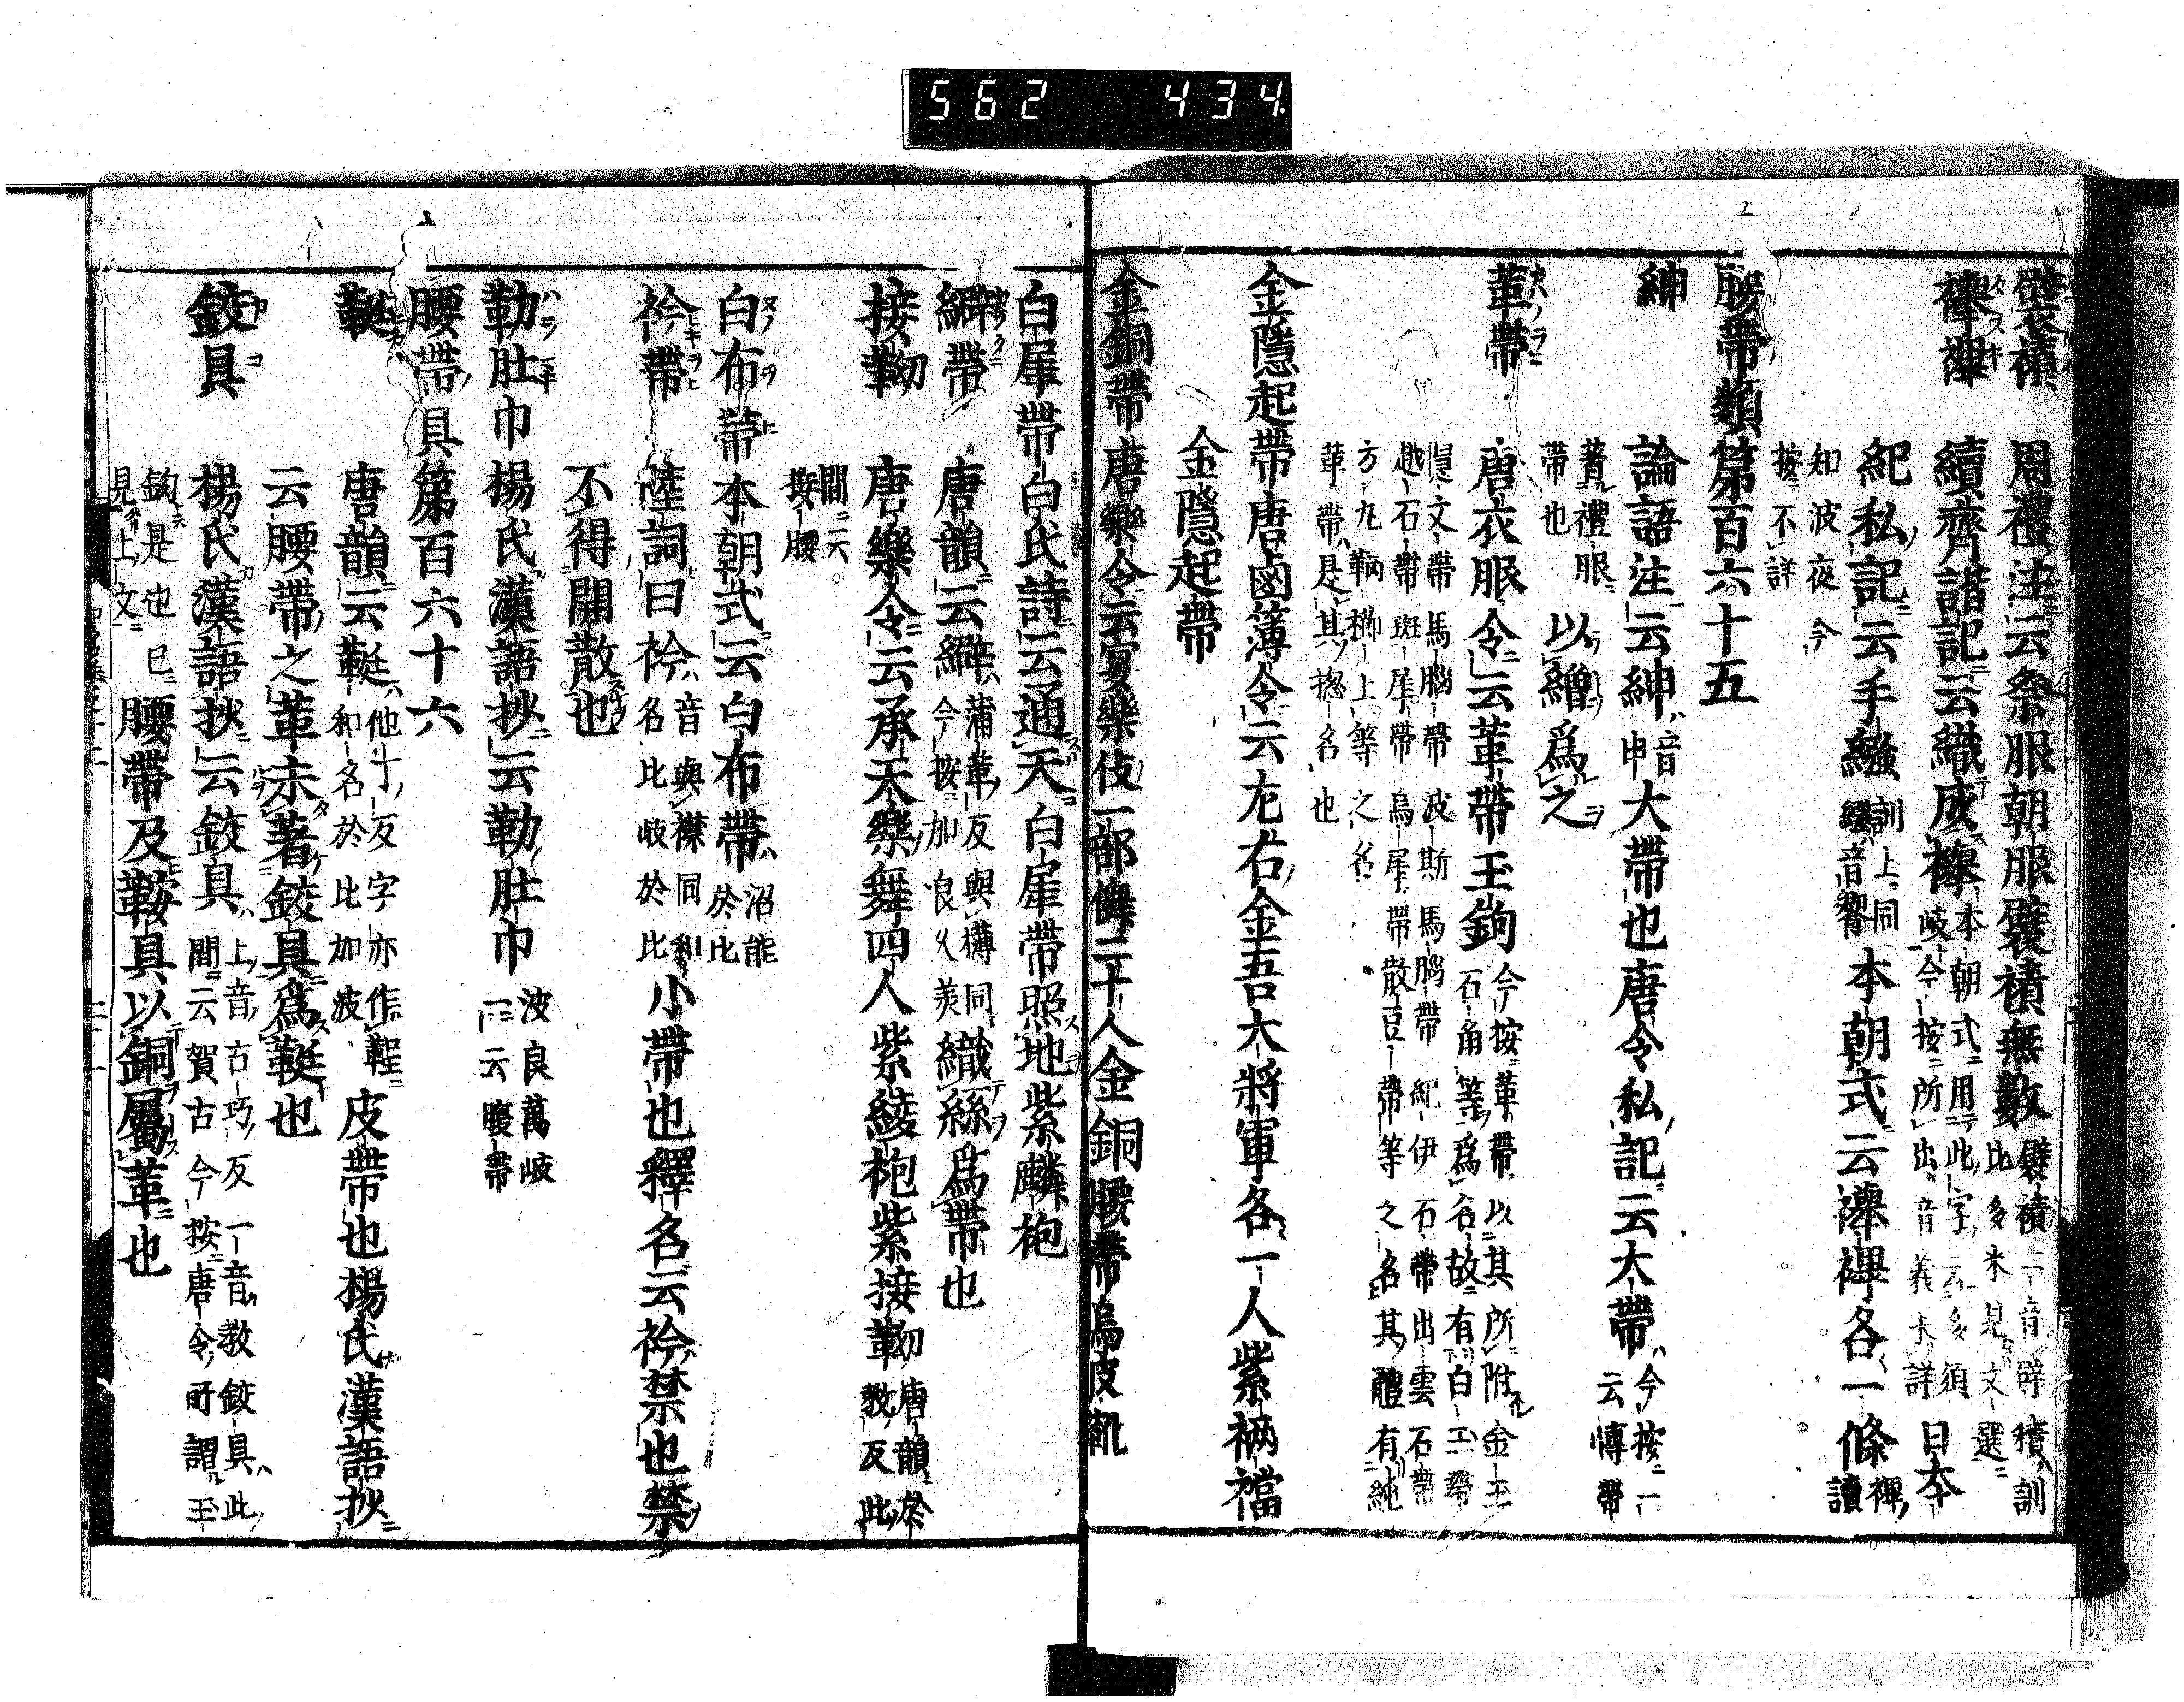 562 434
襞襀 周禮注云祭服朝服襞襀無數 襞襀二音辟積訓比多米見文選
襷襅 續齊諧記云織成襷 本朝式用此字云多須岐今按所出音義未詳 日本
紀私記云手繦 訓上同繦音響 本朝式云襷襅各一條 襅讀
知波夜今按不詳
腰帶類第百六十五
紳 論語注云紳 音申 大帶也唐令私記云大帶 今按一云博帶
著禮服帶也 以繒爲之
革帶 唐衣服令云革帶玉鉤 今按革帶以其所附金玉石角等爲名故有白玉帶
隱文帶馬腦帶波斯馬腦帶紀伊石帶出雲石帶越石帶斑犀帶烏犀帶散豆帶等之名其體有純
方丸鞆櫛上等之名革帶是其惣名也
金隱起帶唐鹵簿令云左右金吾大將軍各一人紫裲襠
金隱起帶
金銅帶唐樂令云宴樂伎一部儛二十人金銅腰帶烏皮靴
白犀帶白氏詩云通天白犀帶照地紫麟袍
綼帶 唐韻云綼 蒲革反與䊞同今按加良久美 織絲爲帶也
接䩞 唐樂令云承天樂舞四人紫綾袍紫接䩞 唐韻於教反此
間云按腰
白布帶本朝式云白布帶 沼能於比
衿帶 陸詞曰衿 音與襟同和名比岐於比 小帶也釋名云衿禁也禁
不得開散也
勒肚巾楊氏漢語抄云勒肚巾 波良萬岐一云腹帶
腰帶具第百六十六
鞓 唐韻云鞓 他丁反字亦作䩠和名於比加波 皮帶也楊氏漢語抄
云腰帶之革未著鉸具爲鞓也
鉸具 楊氏漢語抄云鉸具 上音古巧反一音教鉸具此間云賀古今按唐令所謂玉
鉤是也已見上文 腰帶及鞍具以銅屬革也